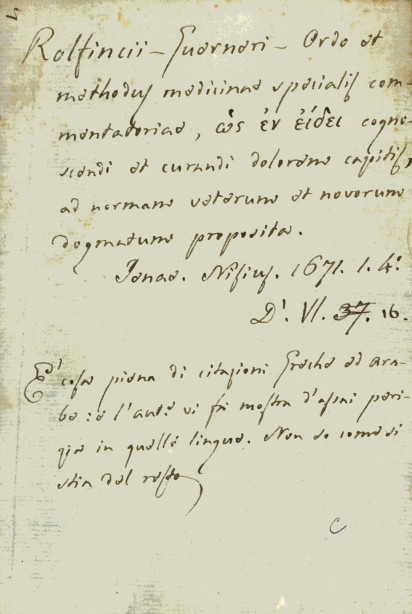 Rolfincii - Guerneri - Ordo et
methodus medicinae specialis com-
mentatoriae, ὡς ἐν εἴδει cogno-
scendi et curandi dolorem capitis,
ad normam veterum et novorum
dogmatum proposita.
Jenae. Nisius. 1671. 1. 4.º
D'. VI. 37. 16.
E' cosa piena di citazioni Greche ed Ara-
be: e l'aut.e vi fa mostra d'assai peri-
zia in quelle lingue. Non so come si
stia del resto
C